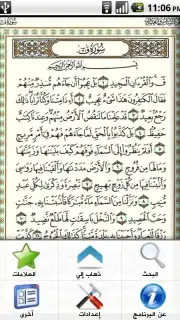 11:06 PM
سُورَةُ ق
بِسْمِ ٱللَّهِ ٱلرَّحْمَٰنِ ٱلرَّحِيمِ
قٓ وَٱلْقُرْءَانِ ٱلْمَجِيدِ ١ بَلْ عَجِبُوٓا۟ أَن جَآءَهُم مُّنذِرٌ مِّنْهُمْ
فَقَالَ ٱلْكَٰفِرُونَ هَٰذَا شَىْءٌ عَجِيبٌ ٢ أَءِذَا مِتْنَا وَكُنَّا تُرَابًا ذَٰلِكَ
رَجْعٌۢ بَعِيدٌ ٣ قَدْ عَلِمْنَا مَا تَنقُصُ ٱلْأَرْضُ مِنْهُمْ وَعِندَنَا كِتَٰبٌ
حَفِيظٌۢ ٤ بَلْ كَذَّبُوا۟ بِٱلْحَقِّ لَمَّا جَآءَهُمْ فَهُمْ فِىٓ أَمْرٍ مَّرِيجٍ ٥
أَفَلَمْ يَنظُرُوٓا۟ إِلَى ٱلسَّمَآءِ فَوْقَهُمْ كَيْفَ بَنَيْنَٰهَا وَزَيَّنَّٰهَا
وَمَا لَهَا مِن فُرُوجٍ ٦ وَٱلْأَرْضَ مَدَدْنَٰهَا وَأَلْقَيْنَا فِيهَا رَوَٰسِىَ
وَأَنۢبَتْنَا فِيهَا مِن كُلِّ زَوْجٍۭ بَهِيجٍ ٧ تَبْصِرَةً وَذِكْرَىٰ لِكُلِّ عَبْدٍ
مُّنِيبٍ ٨ وَنَزَّلْنَا مِنَ ٱلسَّمَآءِ مَآءً مُّبَٰرَكًا فَأَنۢبَتْنَا بِهِۦ جَنَّٰتٍ
وَحَبَّ ٱلْحَصِيدِ ٩ وَٱلنَّخْلَ بَاسِقَٰتٍ لَّهَا طَلْعٌ نَّضِيدٌ ١٠
البحث
ذهاب إلى
العلامات
عن البرنامج
إعدادات
أخرى